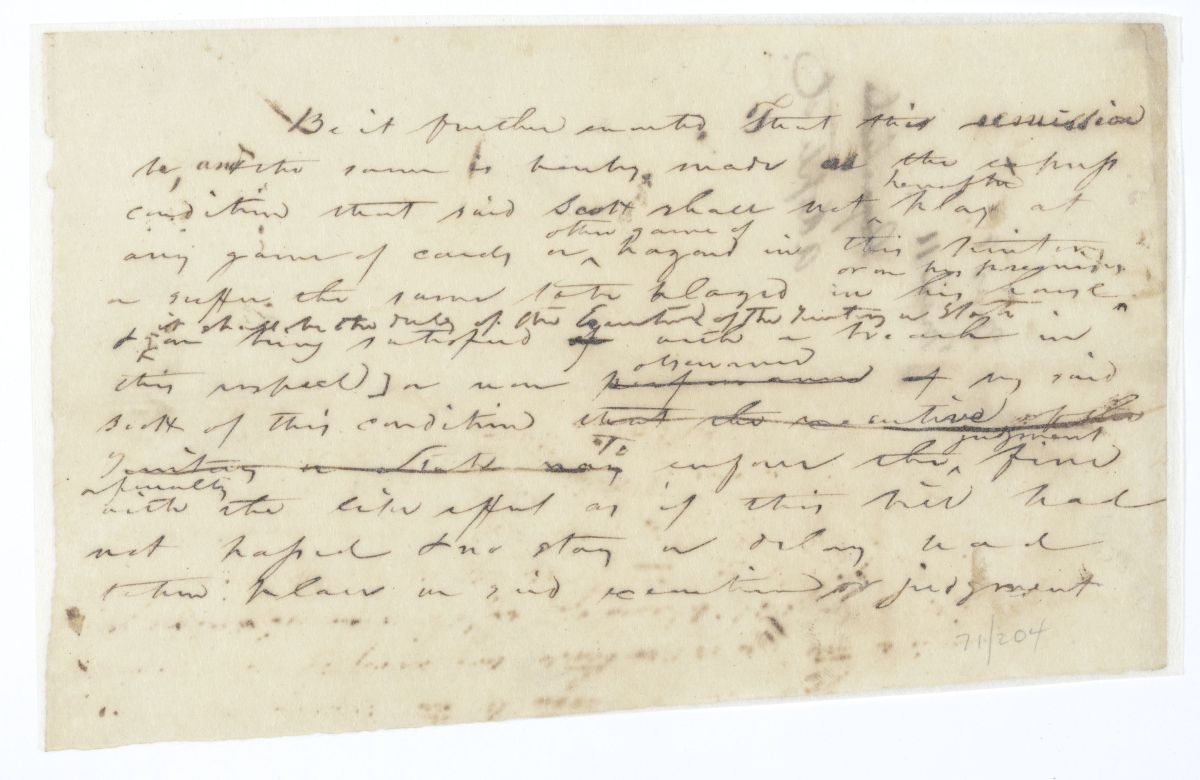 Be it further enacted That this remission
be, and the same is hereby made on the express
condition that said Scott shall not hereafter play at
any game of cards or other game of hazard in this Territory
or suffer the same to be played in his house or on his premises
& it shall be the duty of the Executive of the Territory or State
on being satisfied of with a breach in
this respect] or non performance observance of by said
Scott of this condition that the executive of the
Territory or State may To enforce the judgment fine
or penalty
with the like effect as if this bill had
not passed & no stay or delay had
taken place in said execution or judgment
71/204